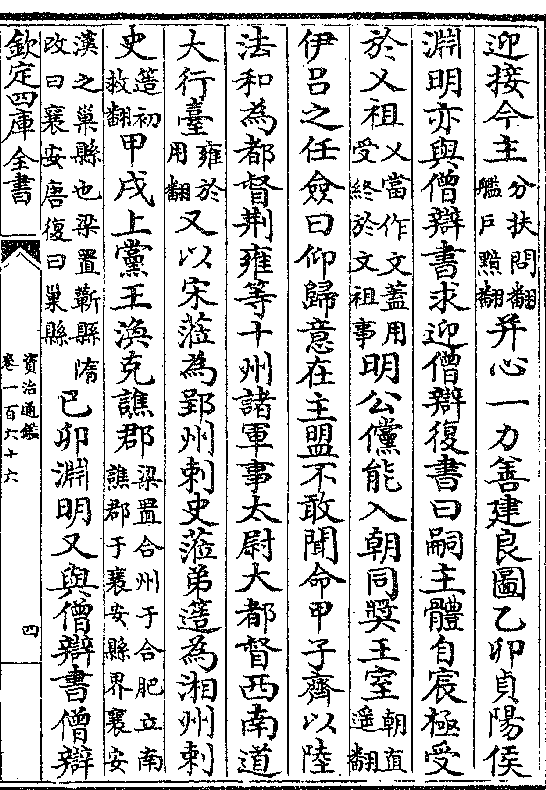 迎接今主分扶問翻艦戶黯翻并心一力善建良圖乙卯貞陽侯
淵明亦與僧辯書求迎僧辯復書曰嗣主體自宸極受
於乂祖乂當作文蓋用受終於文祖事明公儻能入朝同奬王室朝直遥翻
伊吕之任僉曰仰歸意在主盟不敢聞命甲子齊以陸
法和為都督荆雍等十州諸軍事太尉大都督西南道
大行臺雍於用翻又以宋蒞為郢州刺史蒞弟簉為湘州刺
史簉初救翻甲戌上黨王渙克譙郡梁置合州于合肥立南譙郡于襄安縣界襄安
漢之巢縣也梁置蘄縣隋改曰襄安唐復曰巢縣已卯淵明又與僧辯書僧辯
欽定四庫全書
資治通鑑
卷一百六十六
四